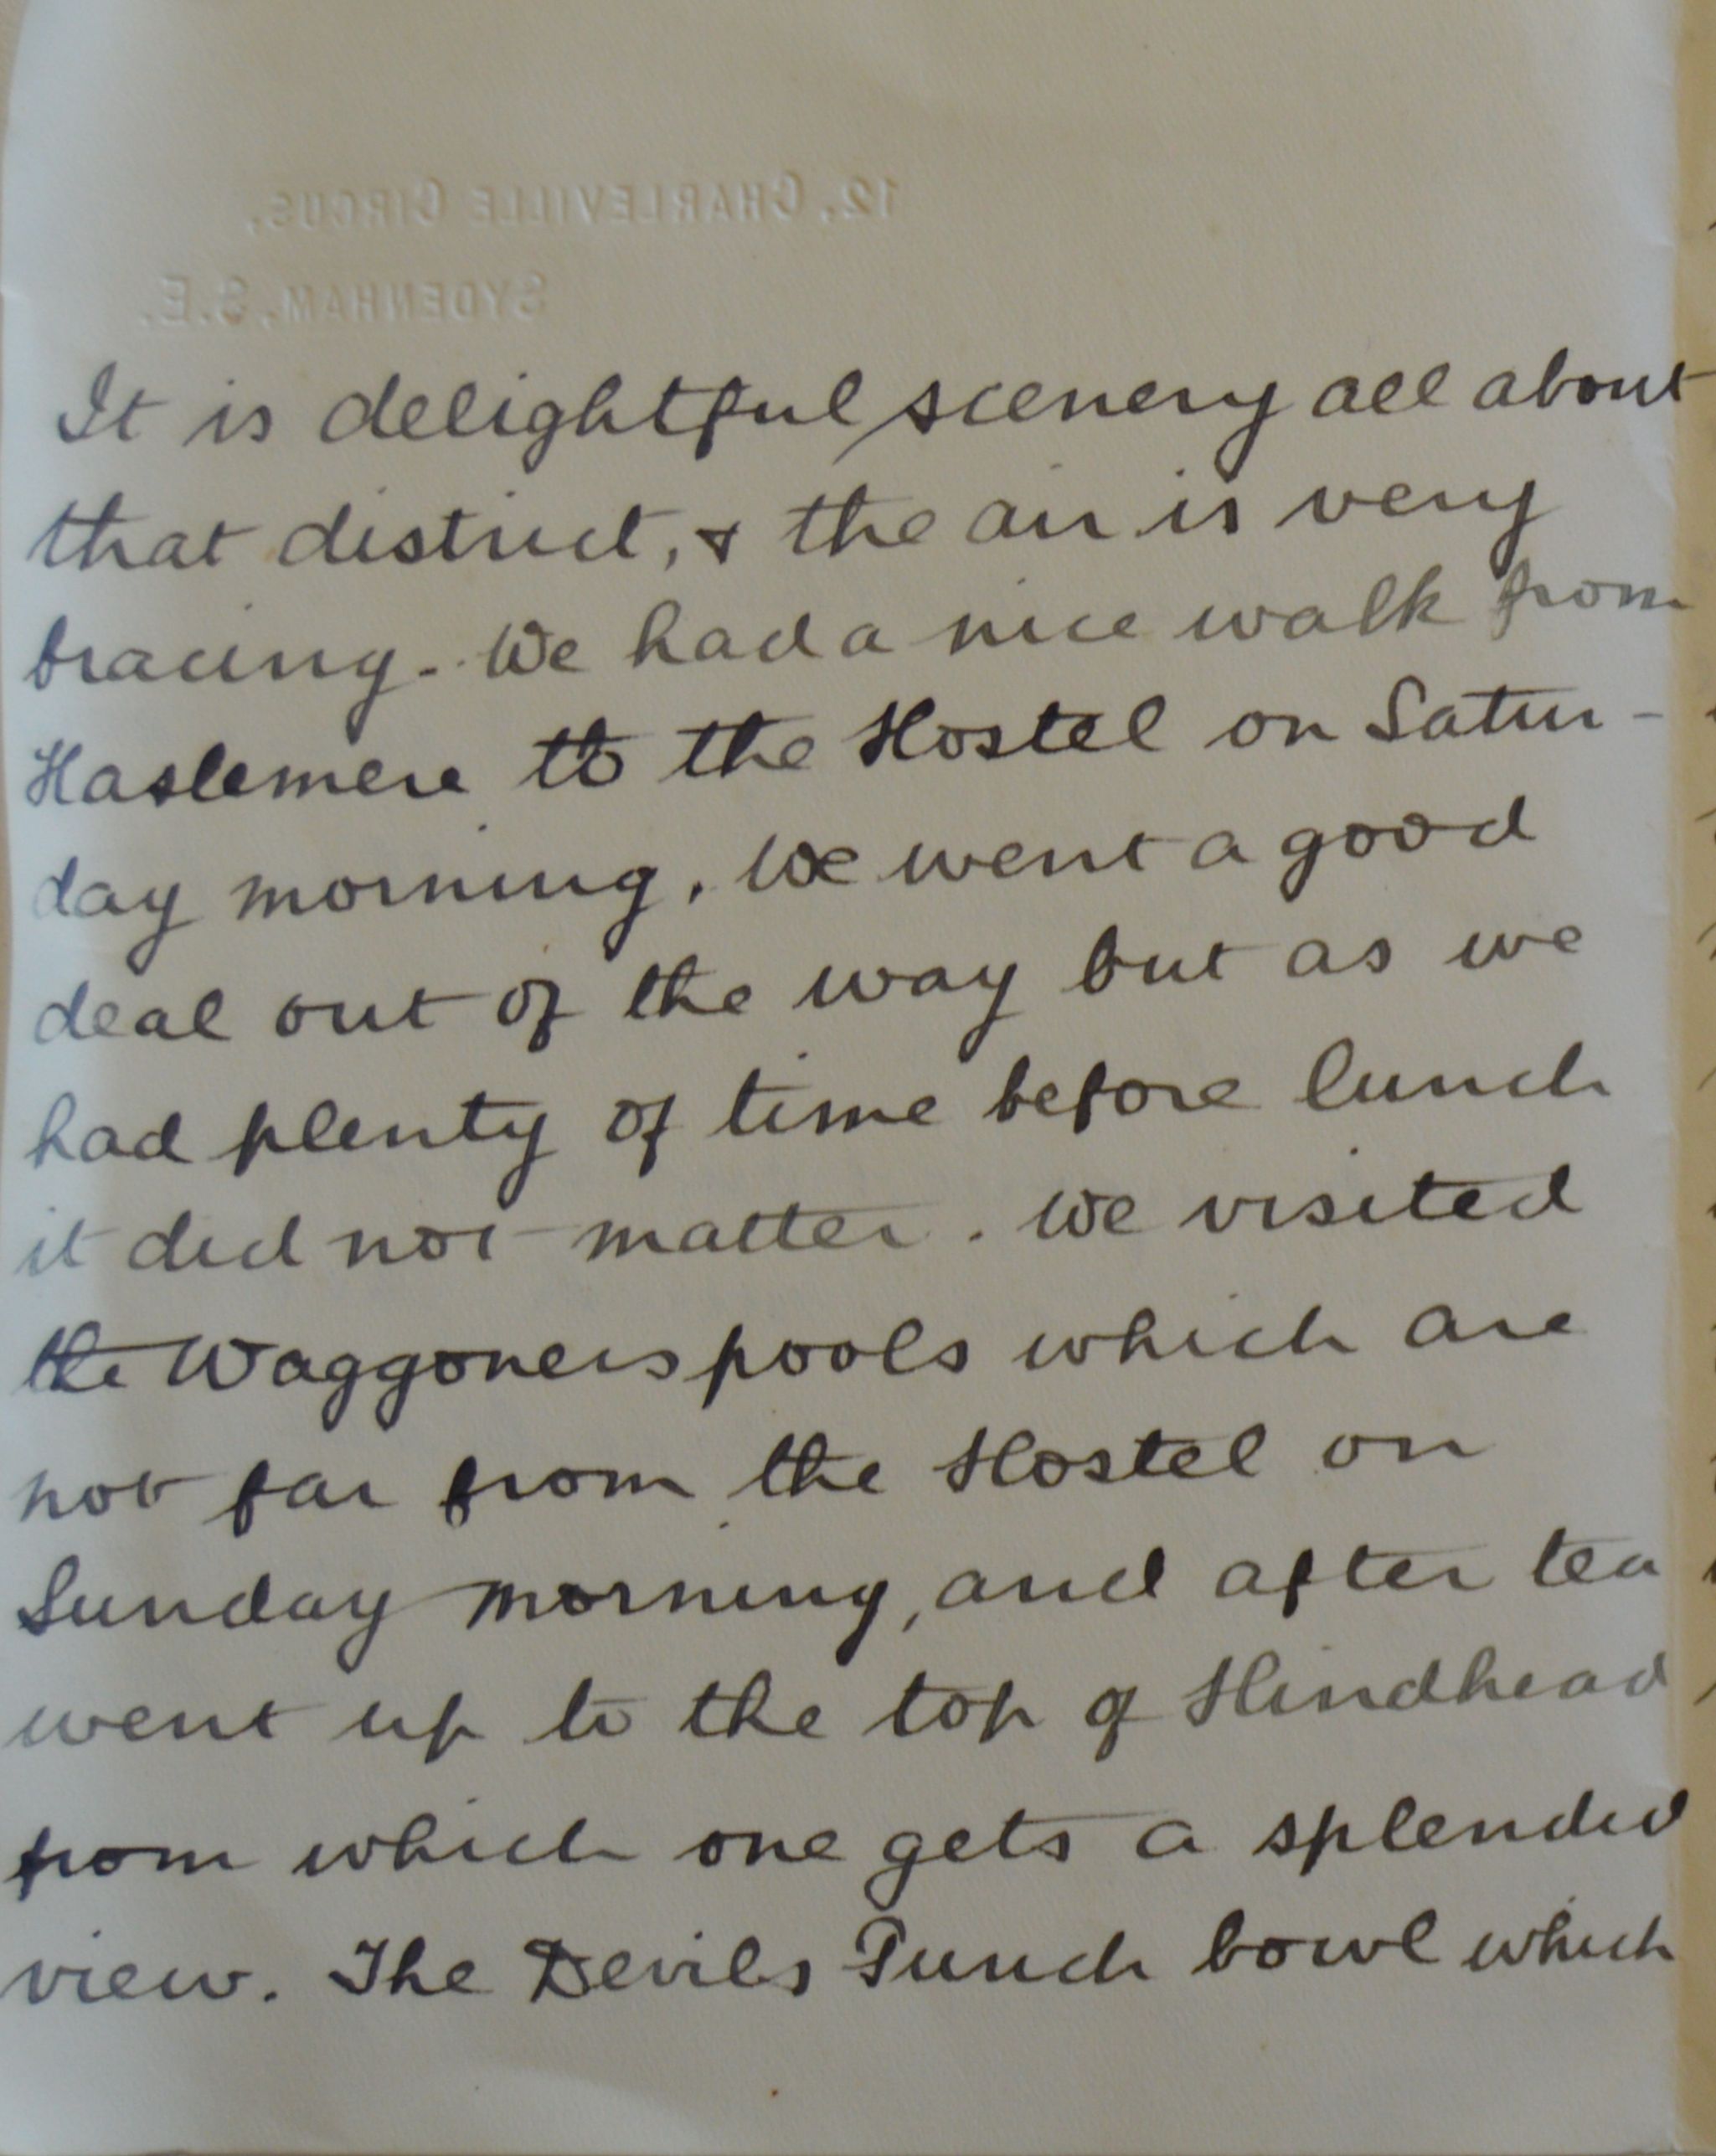 12, CHARLEVILLE CIRCUS,
SYDENHAM, S.E.
It is delightful scenery all about
that district, & the air is very
bracing. We had a nice walk from
Haslemere to the Hostel on Satur-
day morning. We went a good
deal out of the way but as we
had plenty of time before lunch
it did not matter. We visited
the Waggoners pools which are
not far from the Hostel on
Sunday morning, and after tea
went up to the top of Hindhead
from which one gets a splendid
view. The Devils Punch bowl which